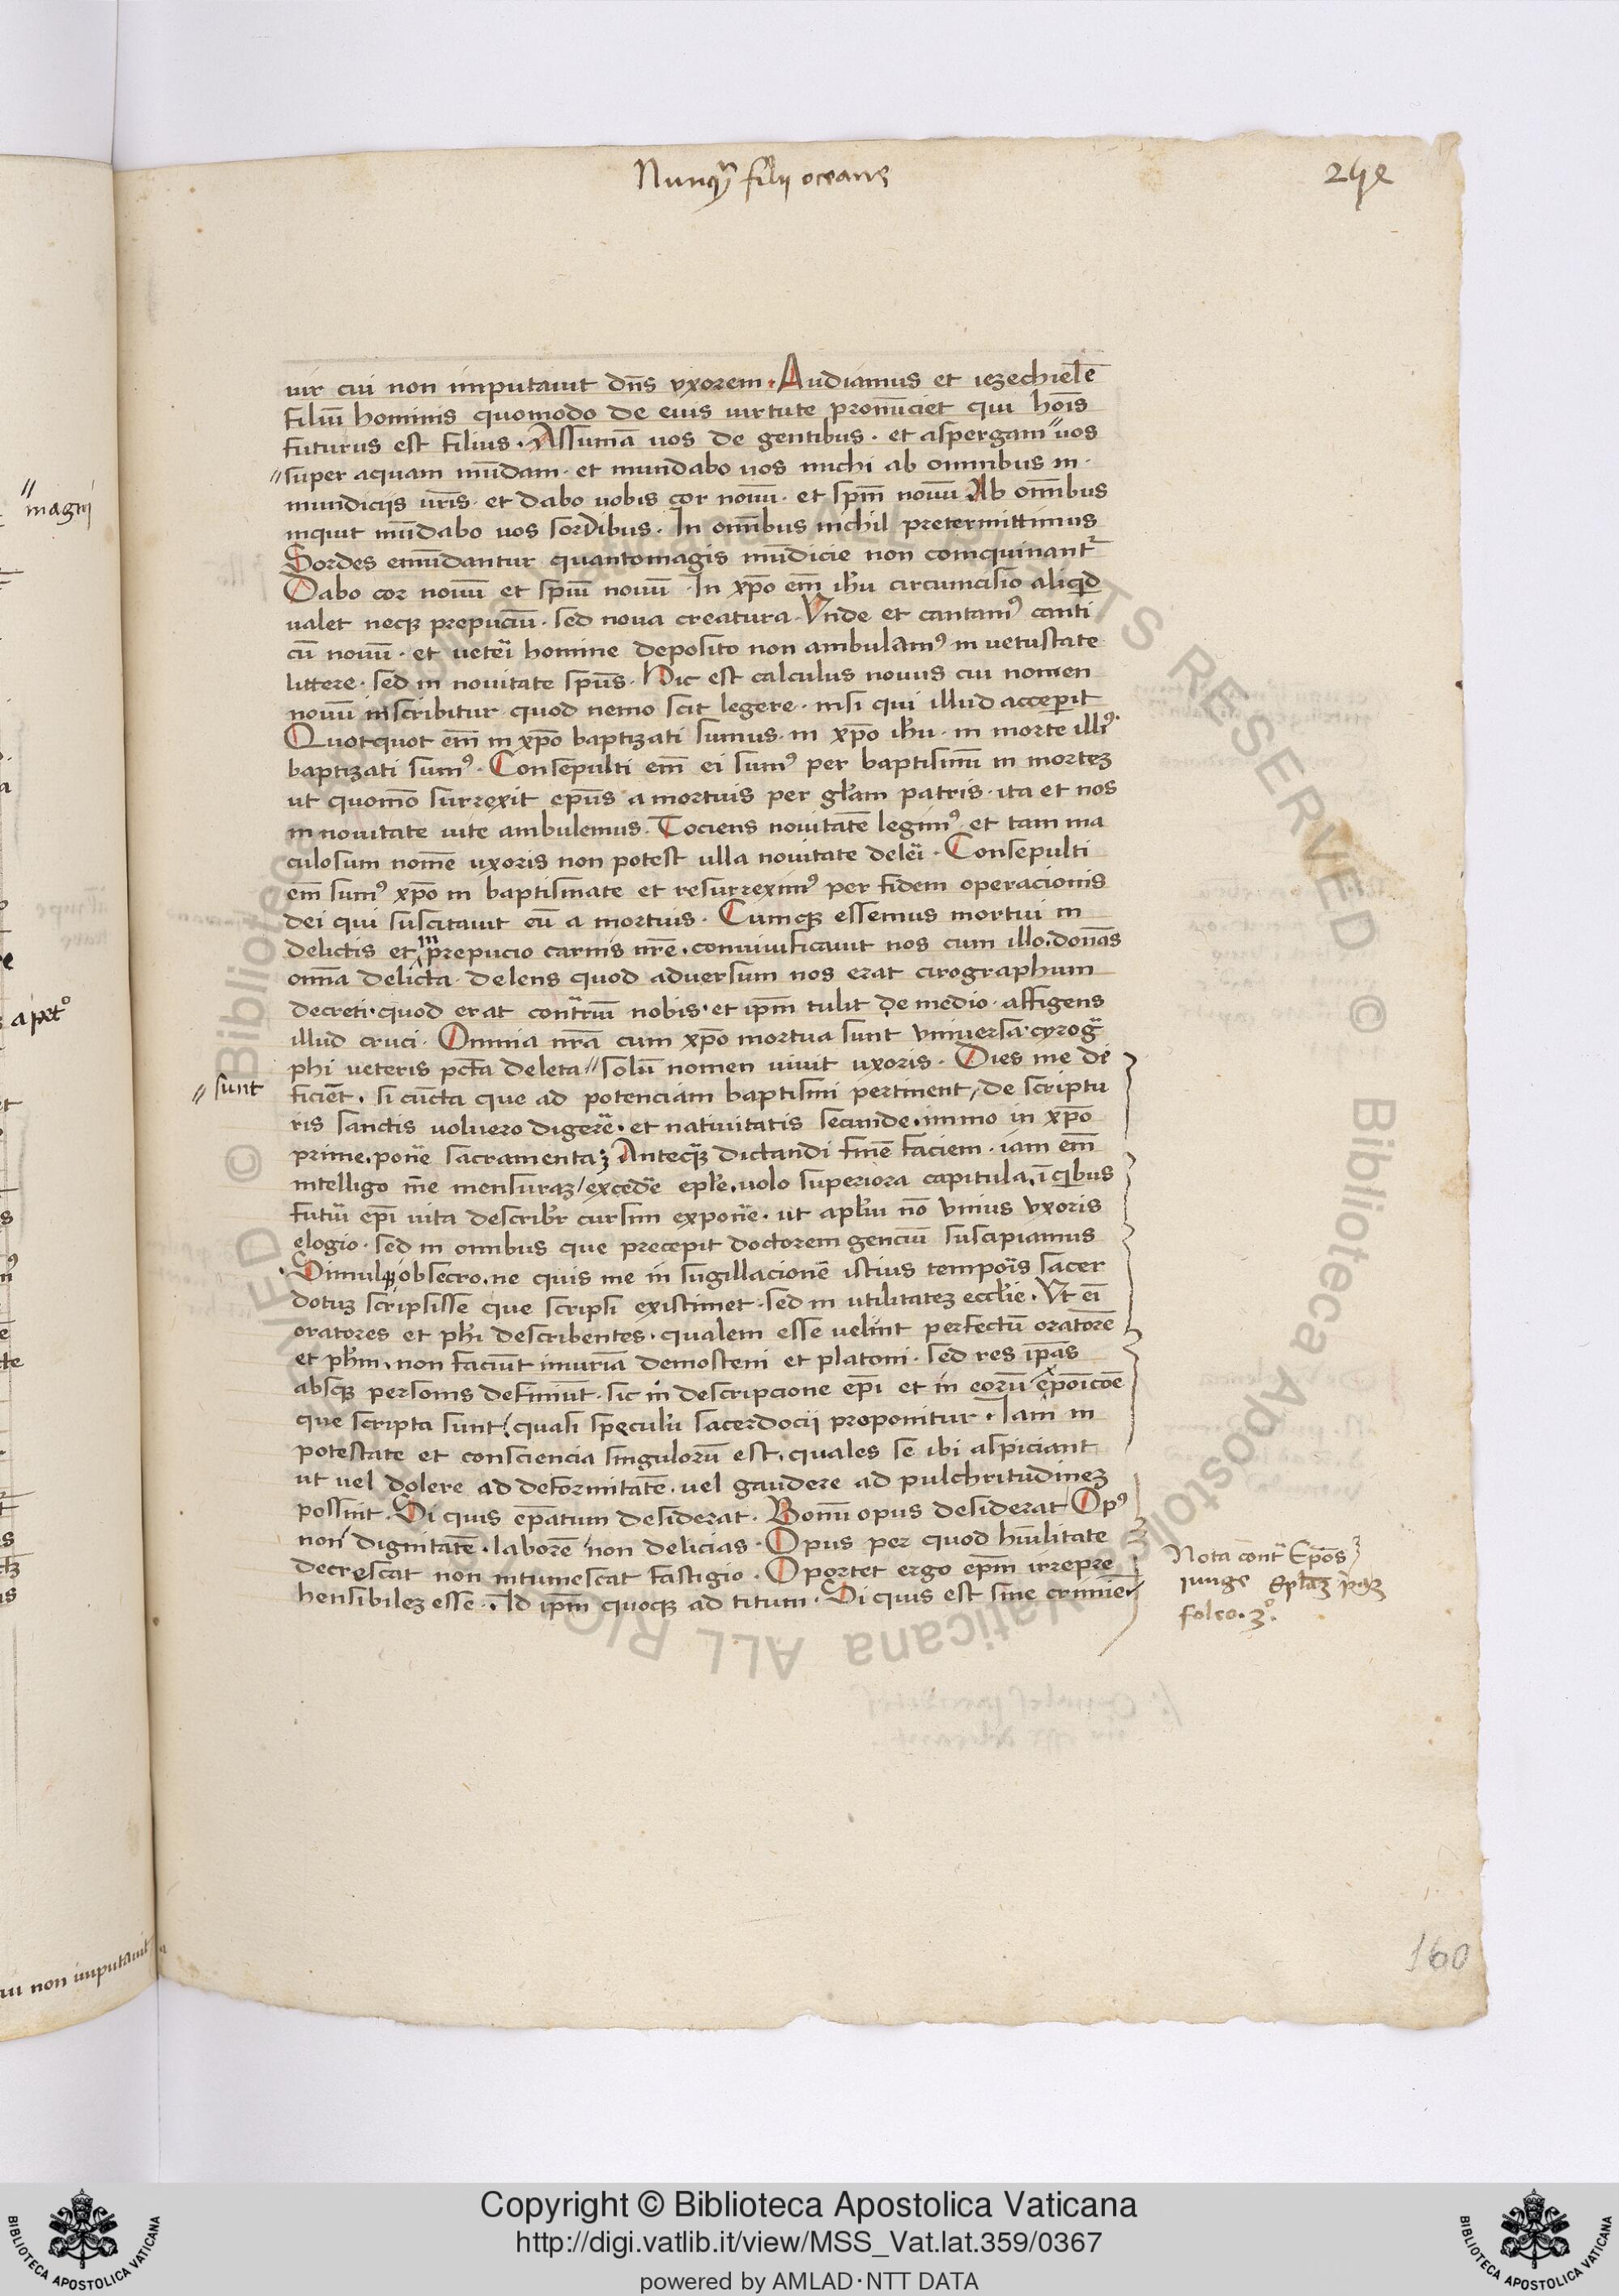 Nunqᷓ filij oceane
242
uir cui non imputauit dn̄s vxorem. Audiamus et iezechielē
filiū hominis quomodo de eius uirtute pronūciet qui hoīs
futurus est filius. Assumā uos de gentibus. et aspergam uos
super aquam mūdam. et mundabo uos michi ab omnibus in
mundiciis ur̄is. et dabo uobis cor nouū. et spm̄ nouū Ab om̄ibus
inquit mūdabo uos sordibus. In om̄ibus nichil pretermittimus
Sordes emūdantur quantomagis mūdicie non coinquinant᷑
Dabo cor nouū et spm̄ nouū. In xp̄o em̄ ih̄u circumcisio aliqd
ualet neqꝫ prepuciū. sed noua creatura. Vnde et cantamꝰ canti
cū nouū. et ueteri homine deposito non ambulamꝰ in uetustate
littere. sed in nouitate spūs. Hic est calculus nouus cui nomen
nouū inscribitur quod nemo scit legere. nisi qui illud acceperit
Quotquot em̄ in xp̄o baptizati sumus. in xp̄o ih̄u. in morte illiꝰ
baptizati sumꝰ. Consepulti em̄ ei sumꝰ per baptismū in morteꝫ
ut quomō surrexit xpūs a mortuis per gl̄am patris. ita et nos
in nouitate uite ambulemus. Tociens nouitatē legimꝰ. et tam ma
culosum nomē uxoris non potest ulla nouitate deleri. Consepulti
em̄ sumꝰ xp̄o in baptismate et resurreximꝰ per fidem operacionis
dei qui suscitauit eū a mortuis. Cumqꝫ essemus mortui in
delictis et in prepucio carnis nr̄e. conuiuificauit nos cum illo. donās
om̄ia delicta. delens quod aduersum nos erat cirographum
decreti. quod erat contrᷓiū nobis. et ipm̄ tulit de medio. affigens
illud cruci. Omnia nr̄a cum xp̄o mortua sunt vniuersa. cyrogᷓ
phi ueteris pctā deleta // solū nomen uiuit uxoris. Dies me de
// sunt
ficiēt. si cūcta que ad potenciam baptismi pertinent, de scriptu
ris sanctis uoluero digerē. et natiuitatis secunde. immo in xp̄o
prime. ponē sacramenta; Anteqᷓꝫ dictandi finē faciem. iam em̄
intelligo me mensuraꝫ excedē epl̄e. uolo superiora capitula. ī qibus
futuri epī uita describit᷑ cursim exponē. ut apl̄m nō vnius vxoris
elogio. sed in omnibus que precepit doctorem genciū suscipiamus
Simulqꝫ obsecro. ne quis me in sugillacionē istius temporis sacer
dotuꝫ scripsisse que scripsi existimet. sed in utilitateꝫ eccl̄ie. Vt ei
oratores et ph̄i describentes. qualem esse uelint perfectū oratorē
et ph̄m. non faciūt iniuriā demosteni et platoni. sed res ip̄as
absqꝫ personis definiūt. sic in descripcione ep̄i et in eorū exp̄oicōe
que scripta sunt. quasi speculū sacerdocii proponitur. Iam in
potestate et consciencia singulorū est. quales se ibi aspiciant
ut uel dolere ad deformitatē. uel gaudere ad pulchritudineꝫ
possint. Si quis ep̄atum desiderat. Bonū opus desiderat Opꝰ
non dignitatē. laborē non delicias. Opus per quod hūilitate
decrescat non intumescat fastigio. Oportet ergo ep̄m irrepre
hensibileꝫ esse. Id ip̄m quoqꝫ ad titum. Si quis est sine crimīe
Nota contᷓ Ep̄os
iunge
foleo. 3º.
160
// magnj
apetº
cui non imputauit